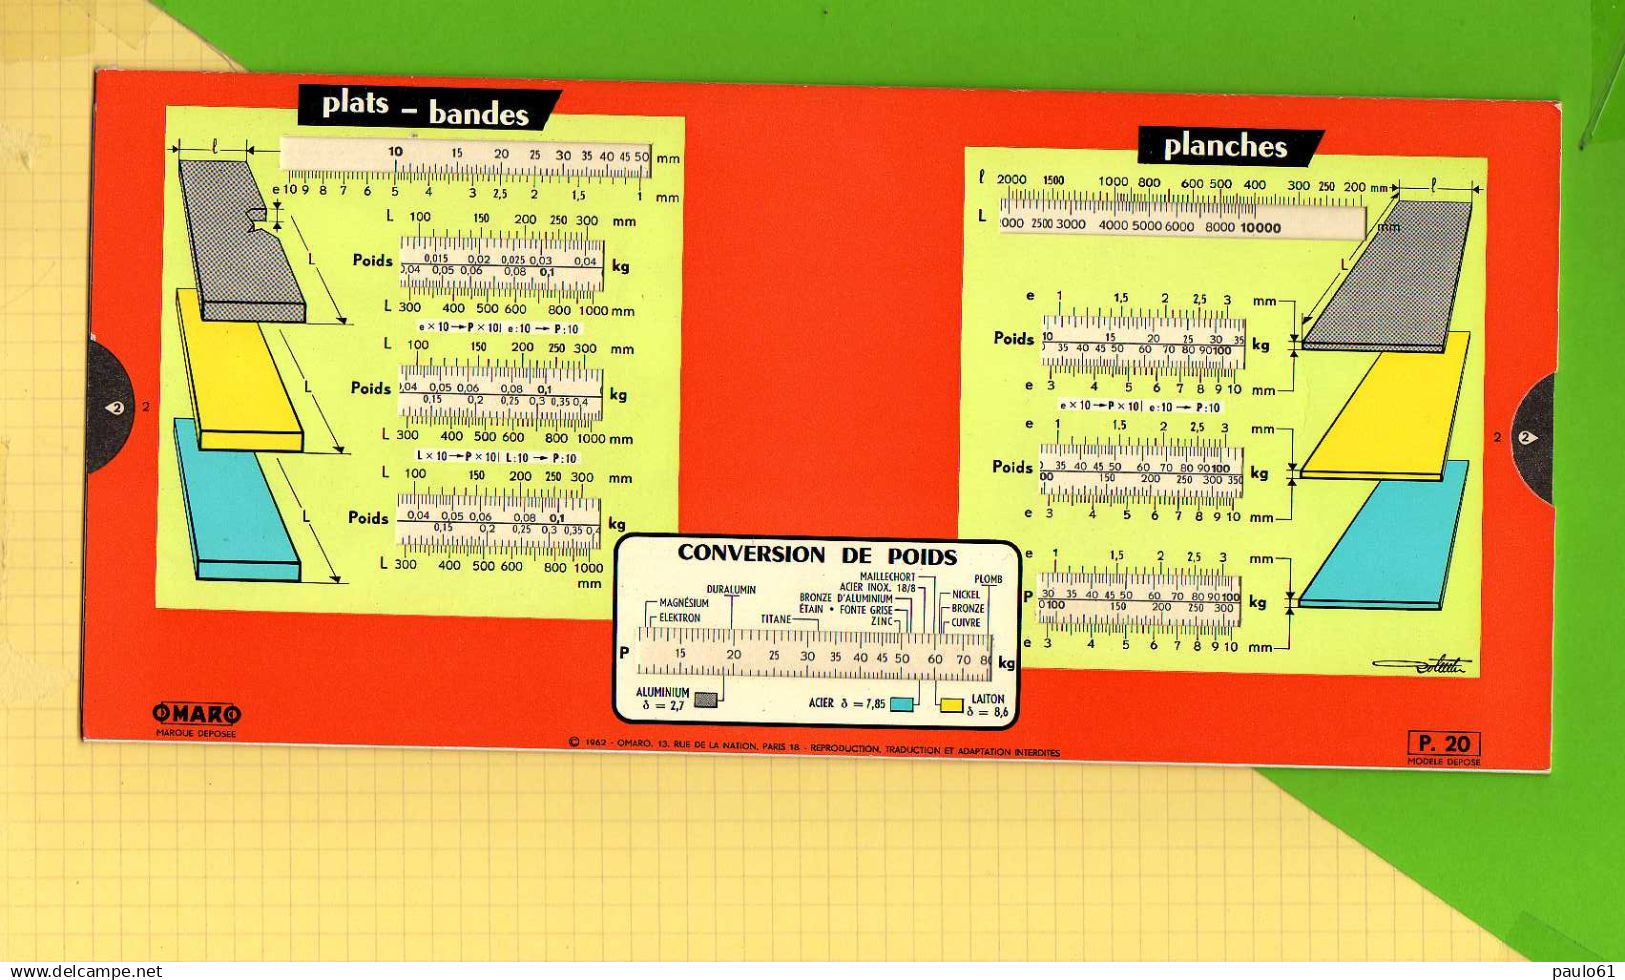 plats - bandes
ℓ
10 15 20 25 30 35 40 45 50 mm
e 10 9 8 7 6 5 4 3 2,5 2 1,5 1 mm
L 100 150 200 250 300 mm
Poids 0,015 0,02 0,025 0,03 0,04 kg
0,05 0,06 0,08 0,1
L 300 400 500 600 800 1000 mm
e × 10 → P × 10 | e : 10 → P : 10
L 100 150 200 250 300 mm
Poids 0,05 0,06 0,08 0,1 kg
0,15 0,2 0,25 0,3 0,35 0,4
L 300 400 500 600 800 1000 mm
L × 10 → P × 10 | L : 10 → P : 10
L 100 150 200 250 300 mm
Poids 0,04 0,05 0,06 0,08 0,1 kg
0,15 0,2 0,25 0,3 0,35 0,4
L 300 400 500 600 800 1000
mm
L
L
L
2 2
planches
ℓ 2000 1500 1000 800 600 500 400 300 250 200 mm ℓ
L 2500 3000 4000 5000 6000 8000 10000 mm
L
e 1 1,5 2 2,5 3 mm
Poids 10 15 20 25 30 35 kg
35 40 45 50 60 70 80 90 100
e 3 4 5 6 7 8 9 10 mm
e × 10 → P × 10 | e : 10 → P : 10
e 1 1,5 2 2,5 3 mm
Poids 35 40 45 50 60 70 80 90 100 kg
150 200 250 300 350
e 3 4 5 6 7 8 9 10 mm
e 1 1,5 2 2,5 3 mm
P 30 35 40 45 50 60 70 80 90 100 kg
100 150 200 250 300
e 3 4 5 6 7 8 9 10 mm
2 2
CONVERSION DE POIDS
MAGNÉSIUM
ELEKTRON
DURALUMIN
TITANE
MAILLECHORT
ACIER INOX. 18/8
BRONZE D'ALUMINIUM
ÉTAIN • FONTE GRISE
ZINC
PLOMB
NICKEL
BRONZE
CUIVRE
P 15 20 25 30 35 40 45 50 60 70 80 kg
ALUMINIUM
δ = 2,7
ACIER δ = 7,85
LAITON
δ = 8,6
OMARO
MARQUE DEPOSEE
© 1962 - OMARO, 13, RUE DE LA NATION, PARIS 18 - REPRODUCTION, TRADUCTION ET ADAPTATION INTERDITES
P. 20
MODELE DEPOSE
www.delcampe.net
paulo61